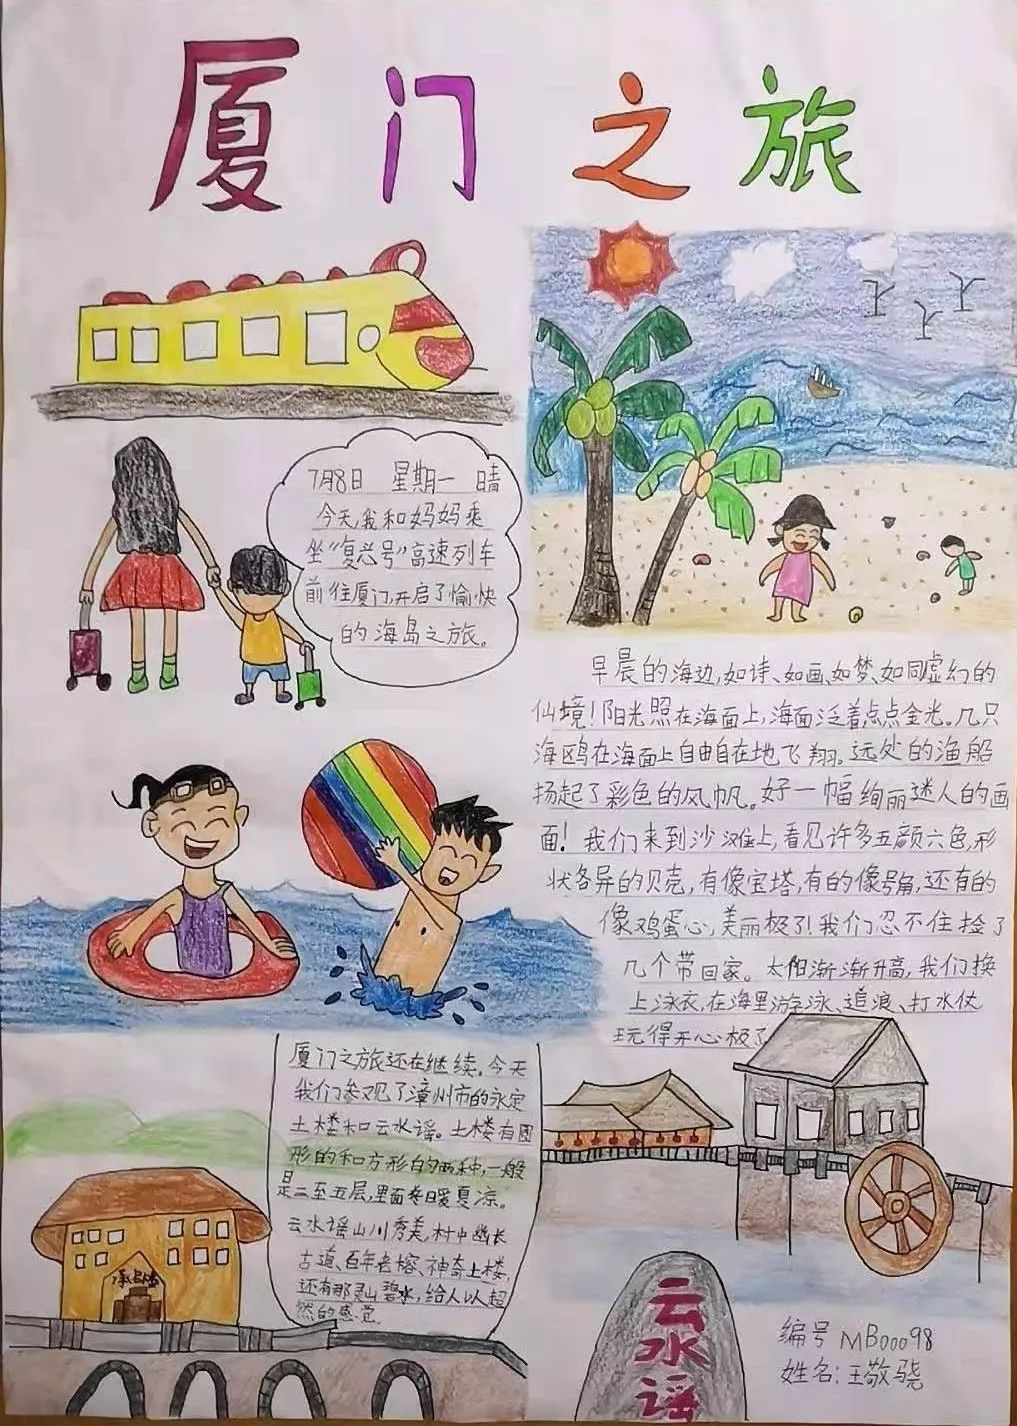 厦门之旅
7月8日 星期一 晴
今天,我和妈妈乘
坐“复兴号”高速列车
前往厦门,开启了愉快
的海岛之旅。
早晨的海边,如诗、如画、如梦、如同虚幻的
仙境!阳光照在海面上,海面泛着点点金光。几只
海鸥在海面上自由自在地飞翔。远处的渔船
扬起了彩色的风帆。好一幅绚丽迷人的画
面!我们来到沙滩上,看见许多五颜六色,形
状各异的贝壳,有像宝塔,有的像号角,还有的
像鸡蛋心,美丽极了!我们忍不住捡了
几个带回家。太阳渐渐升高,我们换
上泳衣,在海里游泳、追浪、打水仗
玩得开心极了
厦门之旅还在继续。今天
我们参观了漳州市的永定
土楼和云水谣。土楼有圆
形的和方形的两种,一般
是三至五层,里面冬暖夏凉。
云水谣山川秀美,村中幽长
古道、百年老榕、神奇土楼,
还有那灵山碧水,给人以超
然的感觉。
承启楼
云水谣
编号 MB00098
姓名:王敬骁